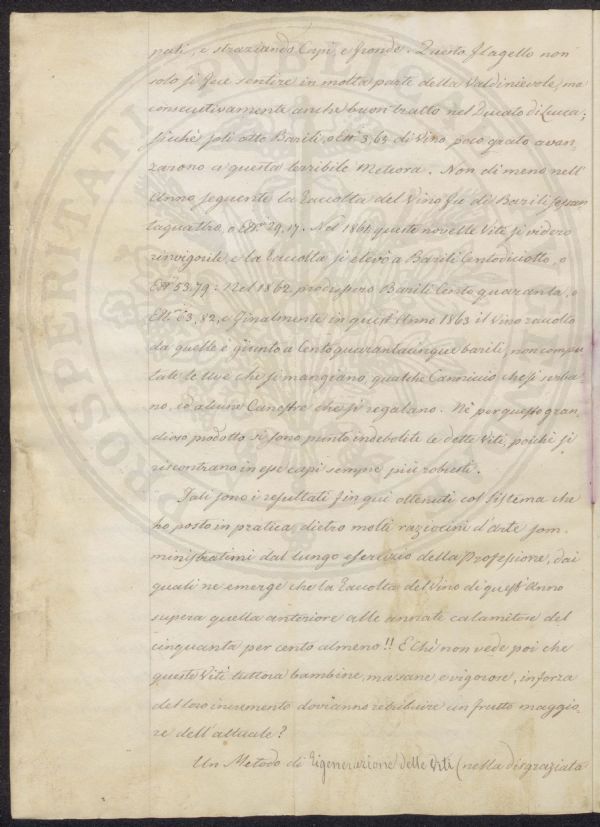 pati, e straziando Capi, e fronde. Questo flagello non
solo si fece sentire in molta parte della Valdinievole, ma
consecutivamente anche buon tratto nel Ducato di Lucca;
sicchè soli otto Barili, o Ett. 3,65 di Vino, poco grato avan-
zarono a questa terribile Meteora. Non di meno nell'
Anno seguente la Raccolta del Vino fu di Barili sessan
taquattro, o Ett. 29,17. Nel 1861 queste novelle Viti si videro
rinvigorite e la Raccolta si elevò a Barili Centodiciotto, o
Ett. 53,79: Nel 1862 produssero Barili Cento quaranta, o
Ett. 63,82, e finalmente in quest'Anno 1863 il Vino raccolto
da quelle è giunto a Centoquarantacinque barili, non compu
tate le Uve che si mangiano, qualche Canniccio che si serba-
no, ed alcune Canestre che si regalano. Nè per questo gran-
dioso prodotto si sono punto indebolite le dette Viti, poichè si
riscontrano in esse capi sempre più robusti.
Tali sono i resultati fin qui ottenuti col sistema che
ho posto in pratica, dietro molti raziocini d'arte som-
ministratimi dal lungo esercizio della Professione, dai
quali ne emerge che la Raccolta del Vino di quest'Anno
supera quella anteriore alle annate calamitose del
cinquanta per cento almeno!! E Chi non vede poi che
queste Viti tuttora bambine, ma sane e vigorose, in forza
del loro incremento dovranno retribuire un frutto maggio-
re dell'attuale?
Un Metodo di Rigenerazione delle Viti (nella disgraziata
PROSPERITATI PUBLICAE